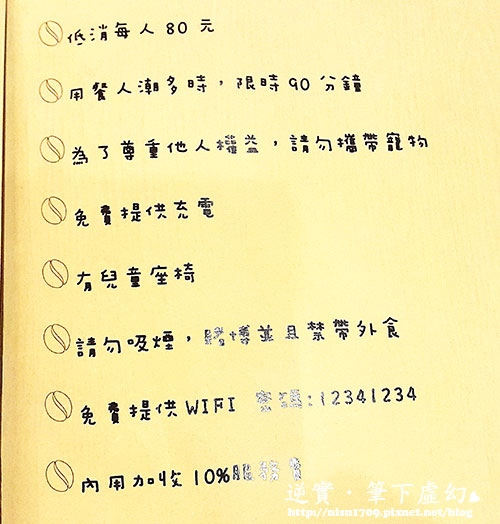 低消每人80元
用餐人潮多時，限時90分鐘
為了尊重他人權益，請勿攜帶寵物
免費提供充電
有兒童座椅
請勿吸煙，賭博並且禁帶外食
免費提供WIFI 密碼:12341234
內用加收10%服務費
逆實·筆下虛幻
http://nisn1709.pixnet.net/blog